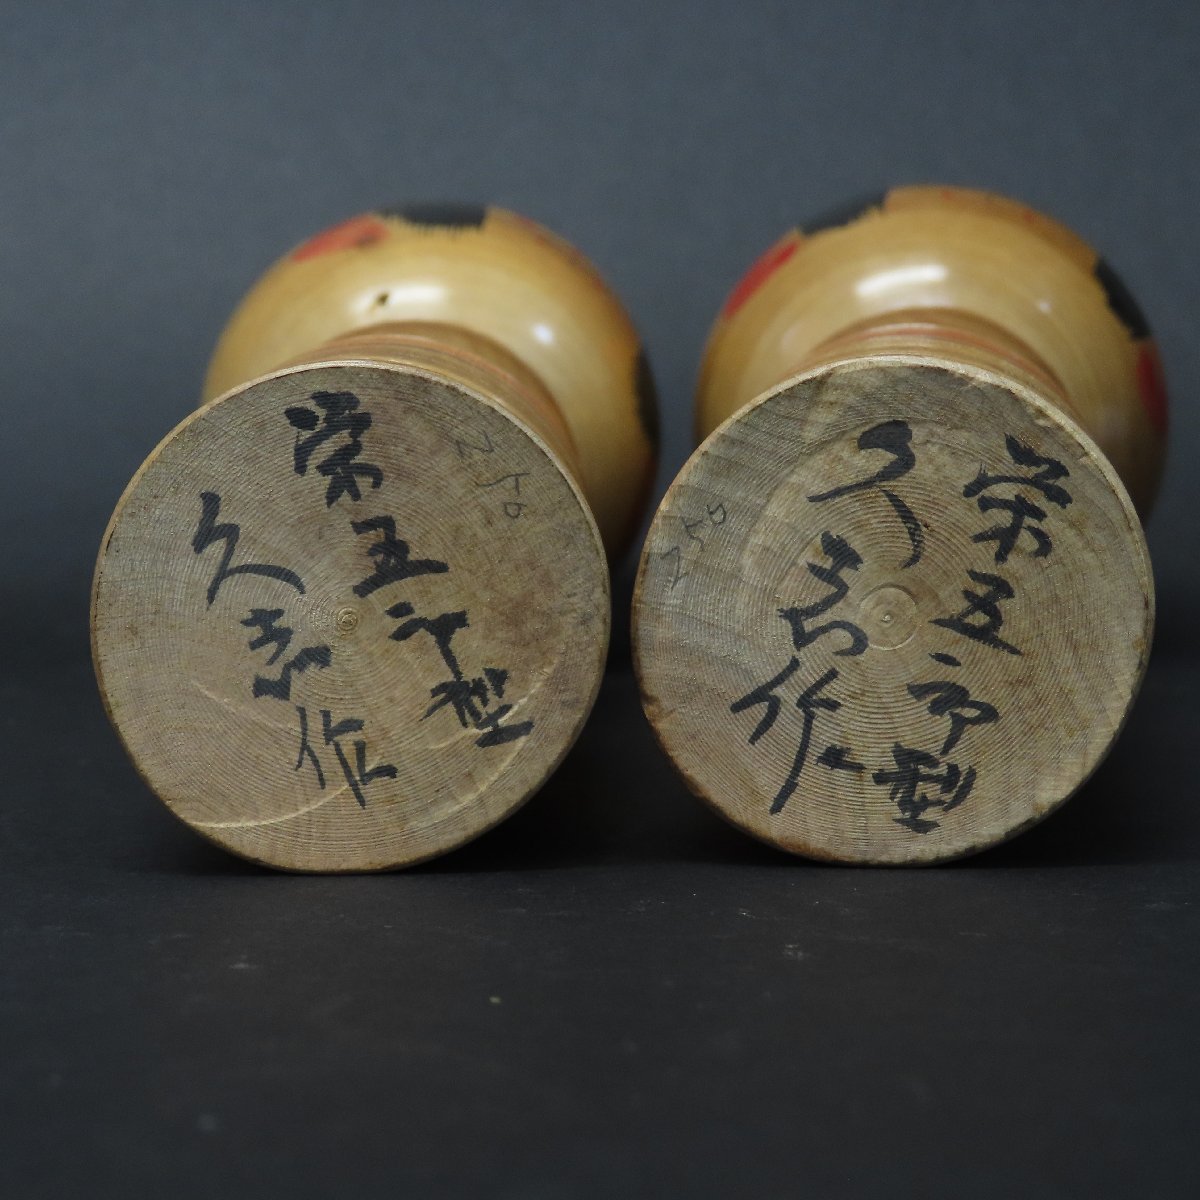 栄五郎型
久志作
250
栄五郎型
久志作
250